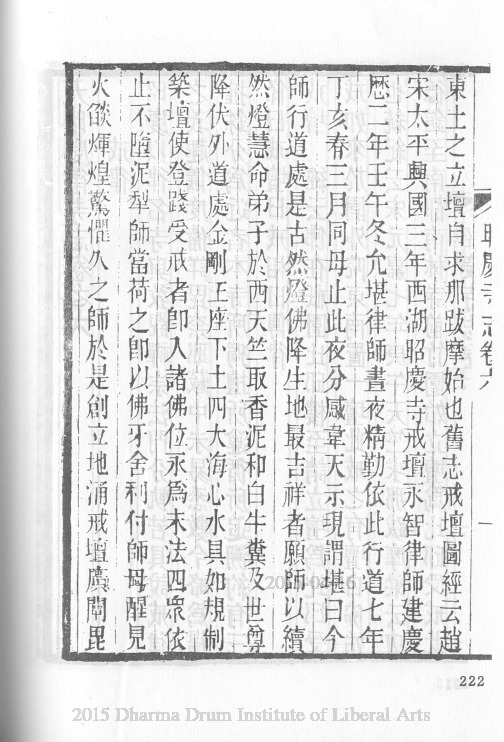 東土之立壇自求那跋摩始也舊志戒壇圖經云趙
宋太平興國三年西湖昭慶寺戒壇永智律師建慶
歷二年壬午冬允堪律師晝夜精勤依此行道七年
丁亥春三月同母止此夜分感韋天示現謂堪曰今
師行道處是古然燈佛降生地最吉祥者願師以續
然燈慧命弟子於西天竺取香泥和白牛糞及世尊
降伏外道處金剛王座下土四大海心水具如規制
築壇使登踐受戒者卽入諸佛位永爲末法四衆依
止不墮泥犁師當荷之卽以佛牙舍利付師母醒見
火燄煇煌驚懼久之師於是創立地涌戒壇廣闡毘
昭慶寺志卷六
一
222
2015 Dharma Drum Institute of Liberal Arts